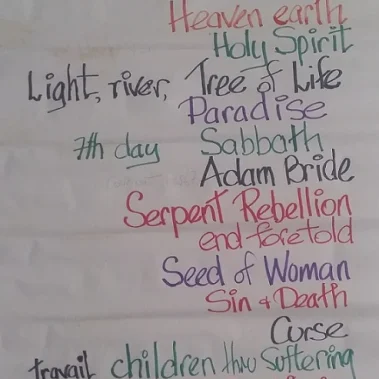 Heaven earth
Holy Spirit
Light, river, Tree of Life
Paradise
7th day Sabbath
Adam Bride
Serpent Rebellion
end foretold
Seed of Woman
Sin & Death
Curse
travail children thru Suffering